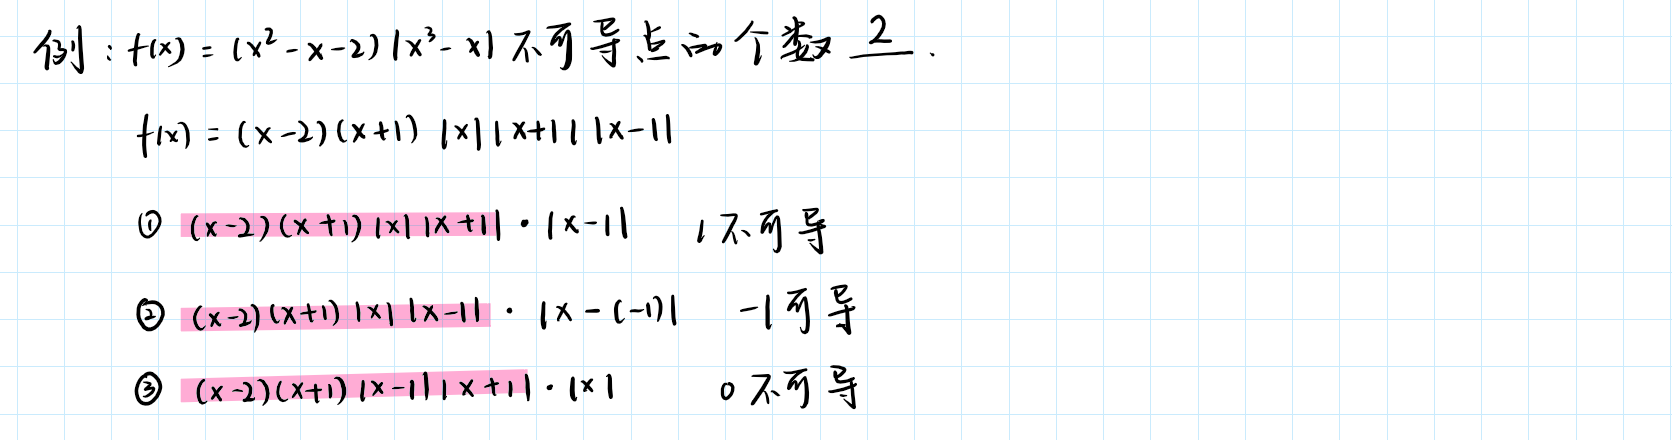 例：f(x) = (x² - x - 2) |x³ - x| 不可导点的个数 2 .
f(x) = (x-2)(x+1) |x| |x+1| |x-1|
① (x-2)(x+1) |x| |x+1| · |x-1| 1不可导
② (x-2)(x+1) |x| |x-1| · |x-(-1)| -1可导
③ (x-2)(x+1) |x-1| |x+1| · |x| 0不可导